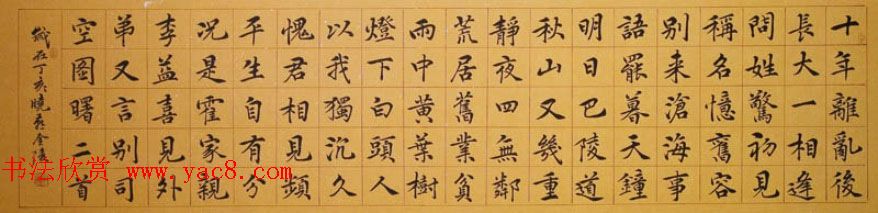 十年離亂後
長大一相逢
問姓驚初見
稱名憶舊容
別来滄海事
語罷暮天鐘
明日巴陵道
秋山又幾重
靜夜四無鄰
荒居舊業貧
雨中黄葉樹
燈下白頭人
以我獨沉久
愧君相見頻
平生自有分
况是霍家親
李益喜見外
弟又言別司
空圖曙二首
歲在丁亥
书法欣赏 www.yac8.com